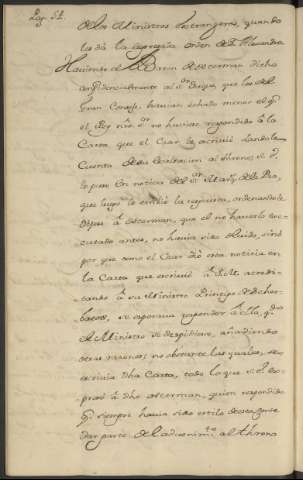 Pag. 51.
de los Ministros estrangeros, quando
les dà la expresada orden de S. Alexandro
Haviendo el Baron de Osterman dicho
confidencialmente al Sr. Duque, que los del
Gran Consejo, havian echado menos el qe.
el Rey nro. Sr. no huviese respondido à la
Carta que el Czar le escrivió dandole
Cuenta de su exaltacion al throno, el Sr.
lo puso en noticia del Sr. Marqs. de la Paz,
que luego le embió la respuesta, ordenandole
dijese à Osterman, que el no haverlo exe-
cutado antes, no havia sido olvido, sinò
por que como el Czar diò esta noticia en
la Carta que escrivió à S.M. acredi-
tando à su Ministro Principe de Scher-
batow, se esperava responder à ella, qdo.
el Ministro se despidiese, añadiendo
otras razones; no obstante las quales, se es-
crivia dha Carta, todo lo que el Sr. ex-
presò à dho Osterman, quien respondió
qe. siempre havia sido estilo de esta Corte
dar parte de la advenimto. al throno